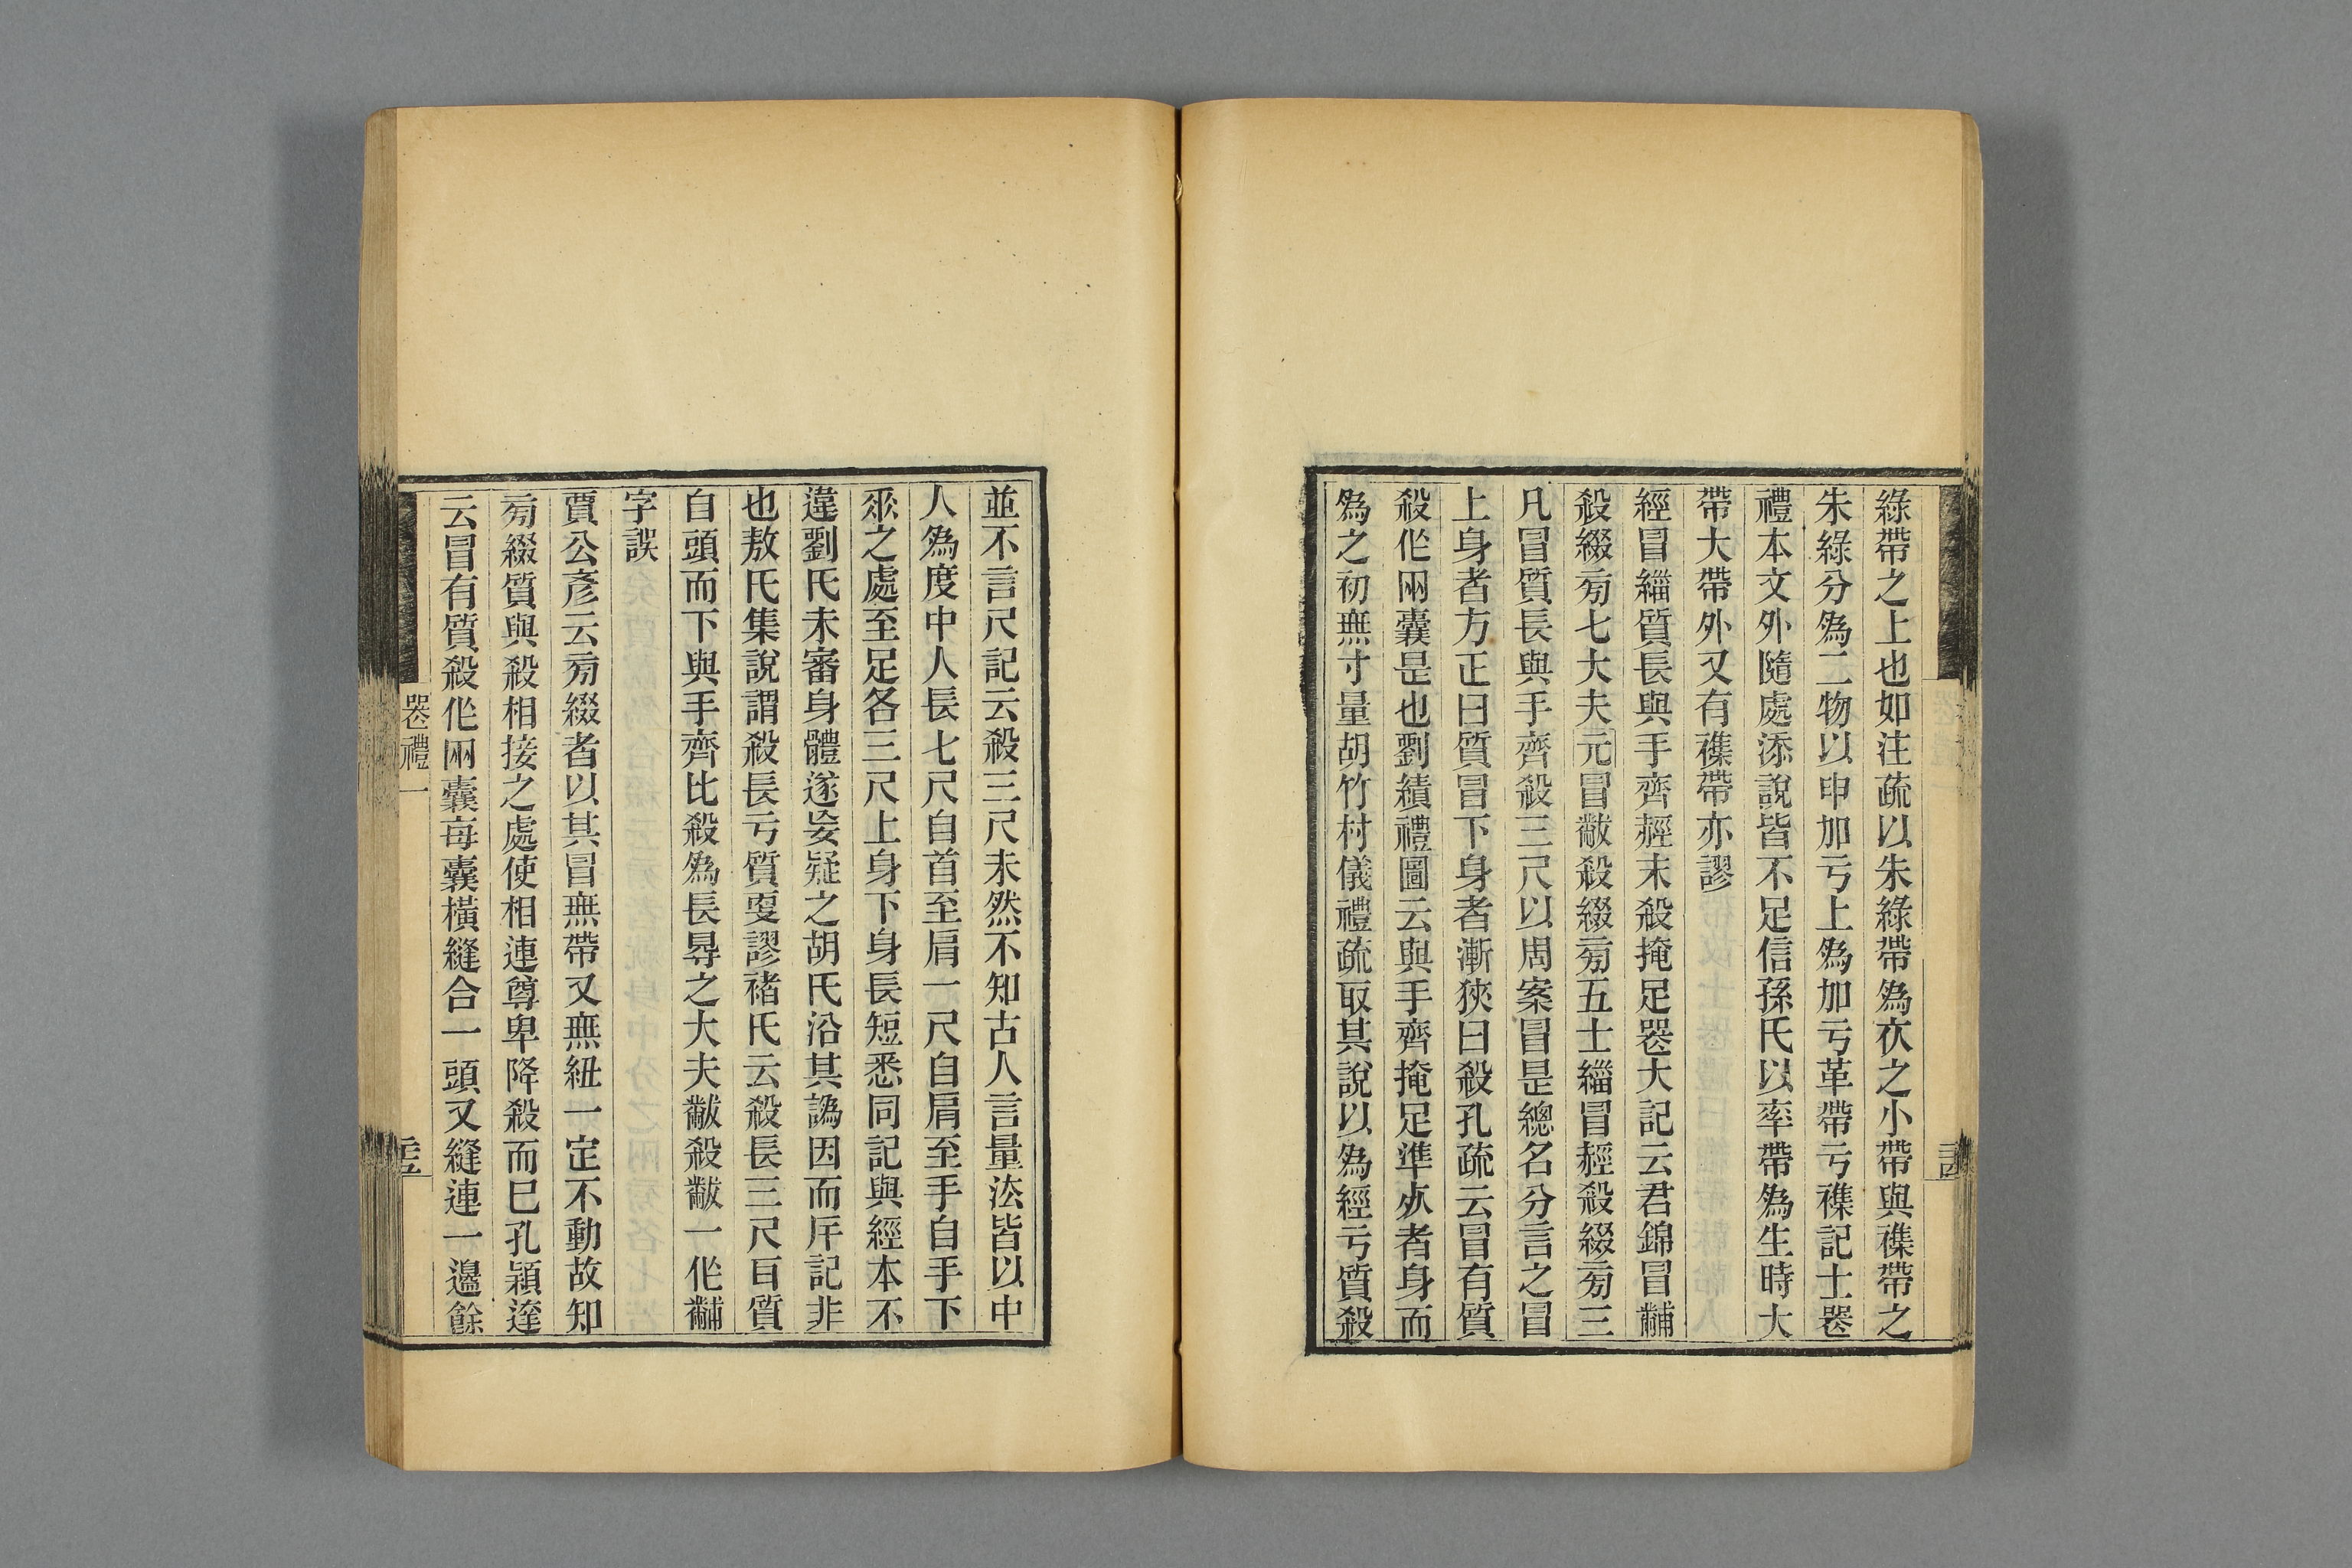 綠帶之上也如注疏以朱綠帶為衣之小帶與襍帶之
朱綠分為二物以申加亏上為加亏革帶亏襍記士喪
禮本文外隨處添說皆不足信孫氏以率帶為生時大
帶大帶外又有襍帶亦謬
經冒緇質長與手齊䞓末殺掩足喪大記云君錦冒黼
殺綴㫄七大夫元冒黻殺綴㫄五士緇冒䞓殺綴㫄三
凡冒質長與手齊殺三尺以周案冒是總名分言之冒
上身者方正曰質冒下身者漸狹曰殺孔疏云冒有質
殺作兩囊是也劉績禮圖云與手齊掩足準死者身而
為之初無寸量胡竹村儀禮疏取其說以為經亏質殺
並不言尺記云殺三尺未然不知古人言量法皆以中
人為度中人長七尺自首至肩一尺自肩至手自手下
垂之處至足各三尺上身下身長短悉同記與經本不
違劉氏未審身體遂妄疑之胡氏沿其譌因而斥記非
也敖氏集說謂殺長亏質更謬褚氏云殺長三尺百質
自頭而下與手齊比殺為長尋之大夫黻殺黻一作黼
字誤
賈公彥云㫄綴者以其冒無帶又無紐一定不動故知
㫄綴質與殺相接之處使相連尊卑降殺而巳孔穎達
云冒有質殺作兩囊每囊橫縫合一頭又縫連一邊餘
喪禮一